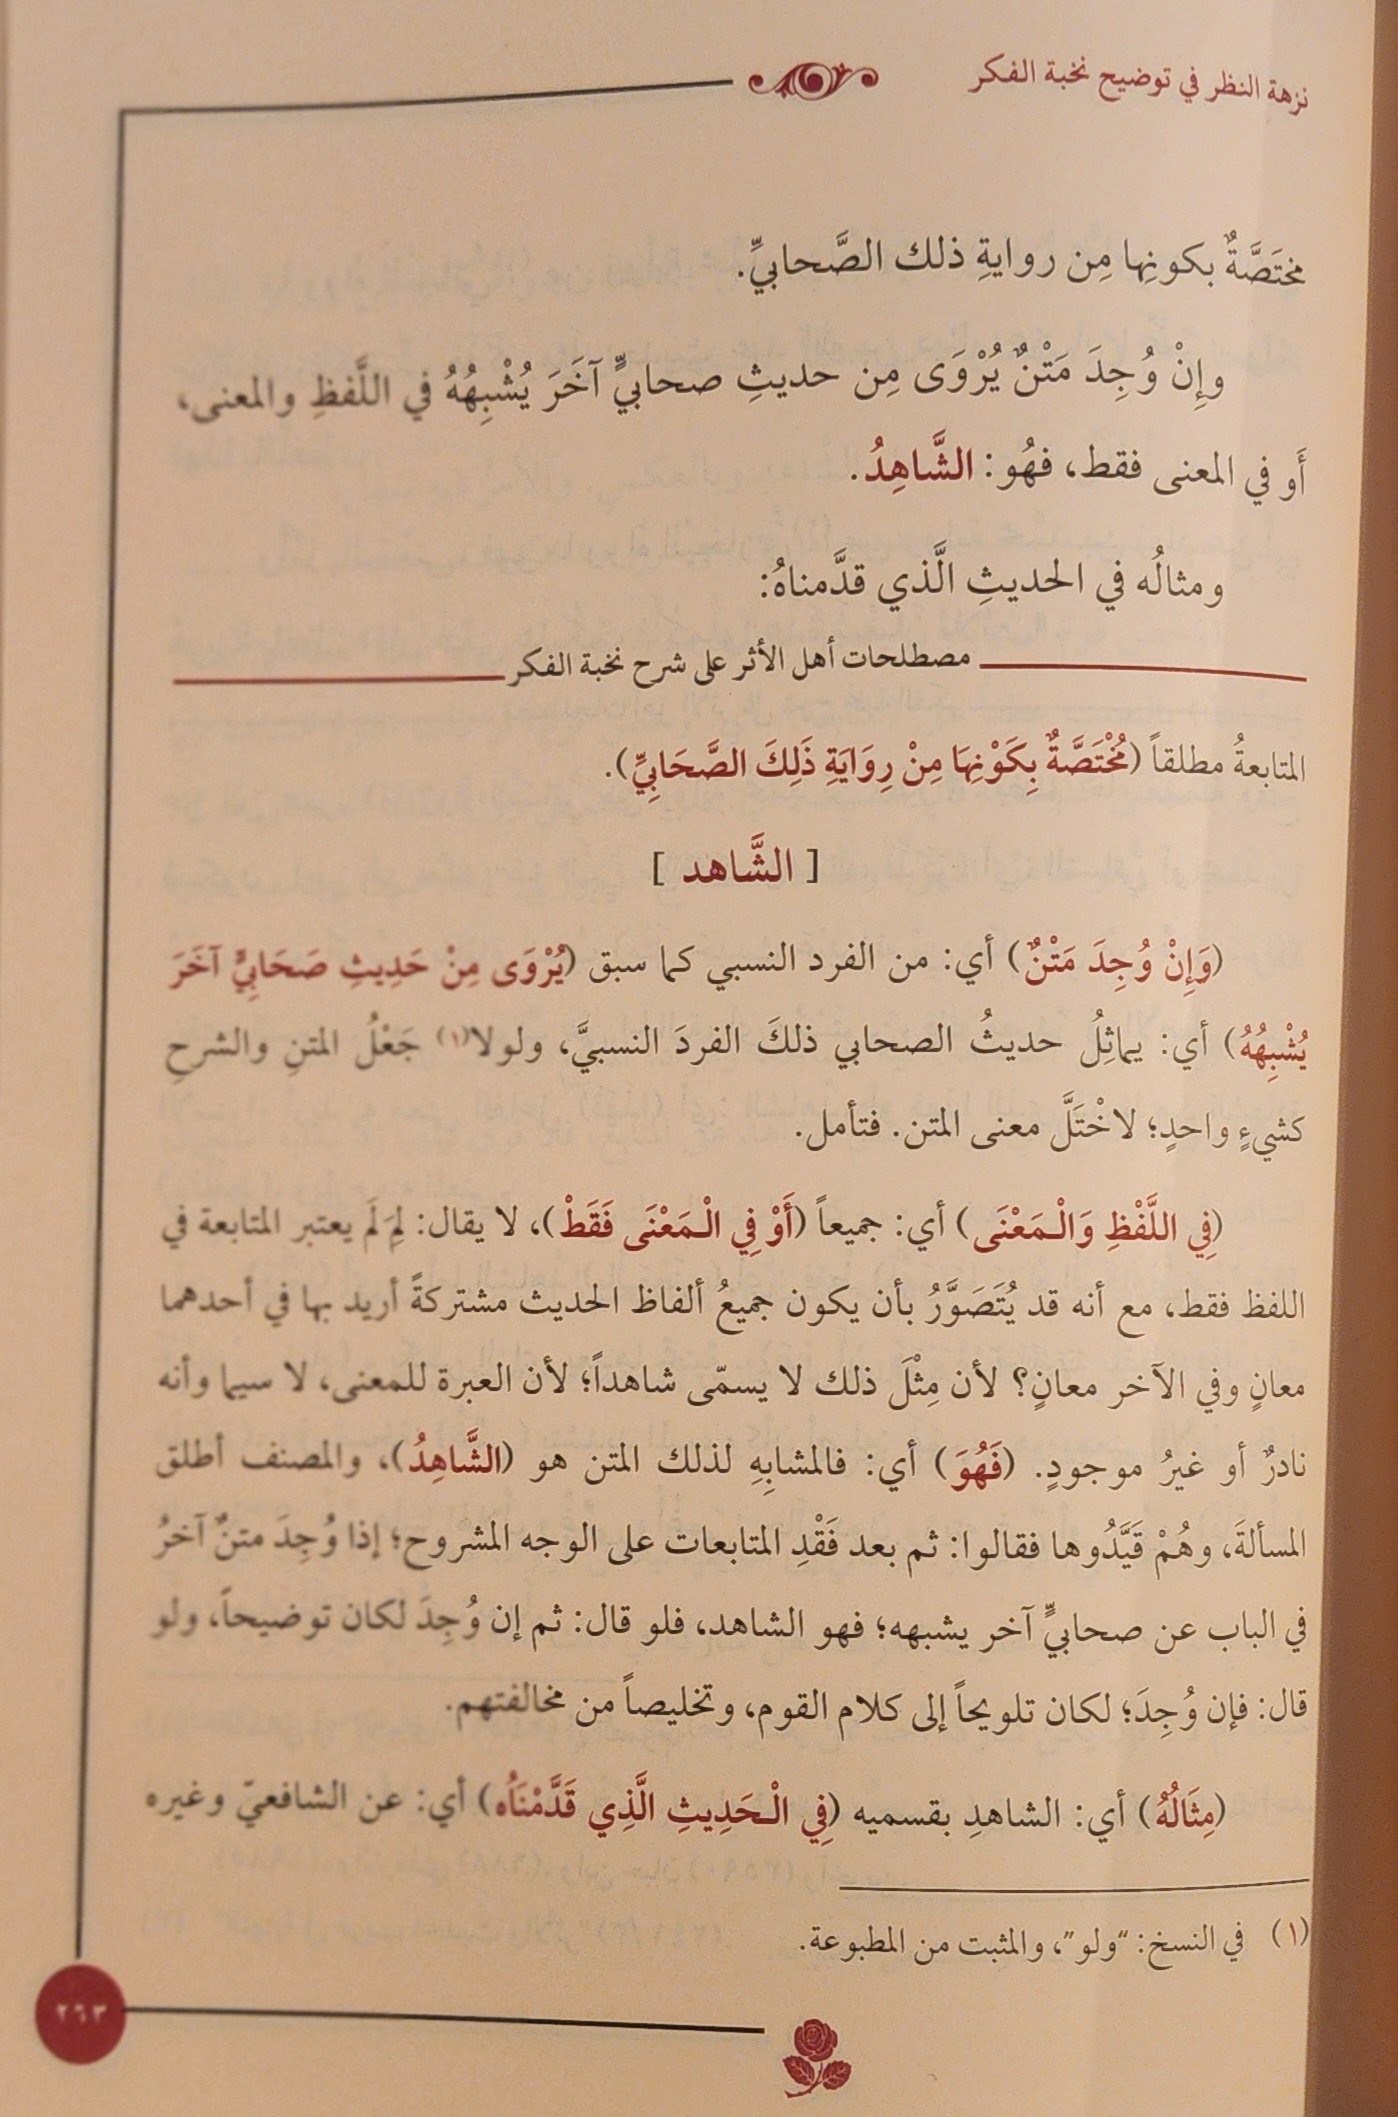 نزهة النظر في توضيح نخبة الفكر
مختَصَّةٌ بكونِها مِن روايةِ ذلك الصَّحابيِّ.
وإِنْ وُجِدَ مَتْنٌ يُرْوَى مِن حديثِ صحابيٍّ آخَرَ يُشْبِهُهُ في اللَّفظِ والمعنى،
أَو في المعنى فقط، فهُو: الشَّاهِدُ.
ومثالُه في الحديثِ الَّذي قدَّمناهُ:
مصطلحات أهل الأثر على شرح نخبة الفكر
المتابعةُ مطلقاً (مُخْتَصَّةٌ بِكَوْنِهَا مِنْ رِوَايَةِ ذَلِكَ الصَّحَابِيِّ).
[ الشَّاهد ]
(وَإِنْ وُجِدَ مَتْنٌ) أي: من الفرد النسبي كما سبق (يُرْوَى مِنْ حَدِيثِ صَحَابِيٍّ آخَرَ
يُشْبِهُهُ) أي: يماثِلُ حديثُ الصحابي ذلكَ الفردَ النسبيَّ، ولولا(١) جَعْلُ المتنِ والشرحِ
كشيءٍ واحدٍ؛ لاخْتَلَّ معنى المتن. فتأمل.
(فِي اللَّفْظِ وَالْمَعْنَى) أي: جميعاً (أَوْ فِي الْمَعْنَى فَقَطْ)، لا يقال: لِمَ لَم يعتبر المتابعة في
اللفظ فقط، مع أنه قد يُتَصَوَّرُ بأن يكون جميعُ ألفاظ الحديث مشتركةً أريد بها في أحدهما
معانٍ وفي الآخر معانٍ؟ لأن مِثْلَ ذلك لا يسمّى شاهداً؛ لأن العبرة للمعنى، لا سيما وأنه
نادرٌ أو غيرُ موجودٍ. (فَهُوَ) أي: فالمشابِهِ لذلك المتن هو (الشَّاهِدُ)، والمصنف أطلق
المسألةَ، وهُمْ قَيَّدُوها فقالوا: ثم بعد فَقْدِ المتابعات على الوجه المشروح؛ إذا وُجِدَ متنٌ آخرُ
في الباب عن صحابيٍّ آخر يشبهه؛ فهو الشاهد، فلو قال: ثم إن وُجِدَ لكان توضيحاً، ولو
قال: فإن وُجِدَ؛ لكان تلويحاً إلى كلام القوم، وتخليصاً من مخالفتهم.
(مِثَالُهُ) أي: الشاهدِ بقسميه (فِي الْحَدِيثِ الَّذِي قَدَّمْنَاهُ) أي: عن الشافعيّ وغيره
(١) في النسخ: "ولو"، والمثبت من المطبوعة.
٢٦٣